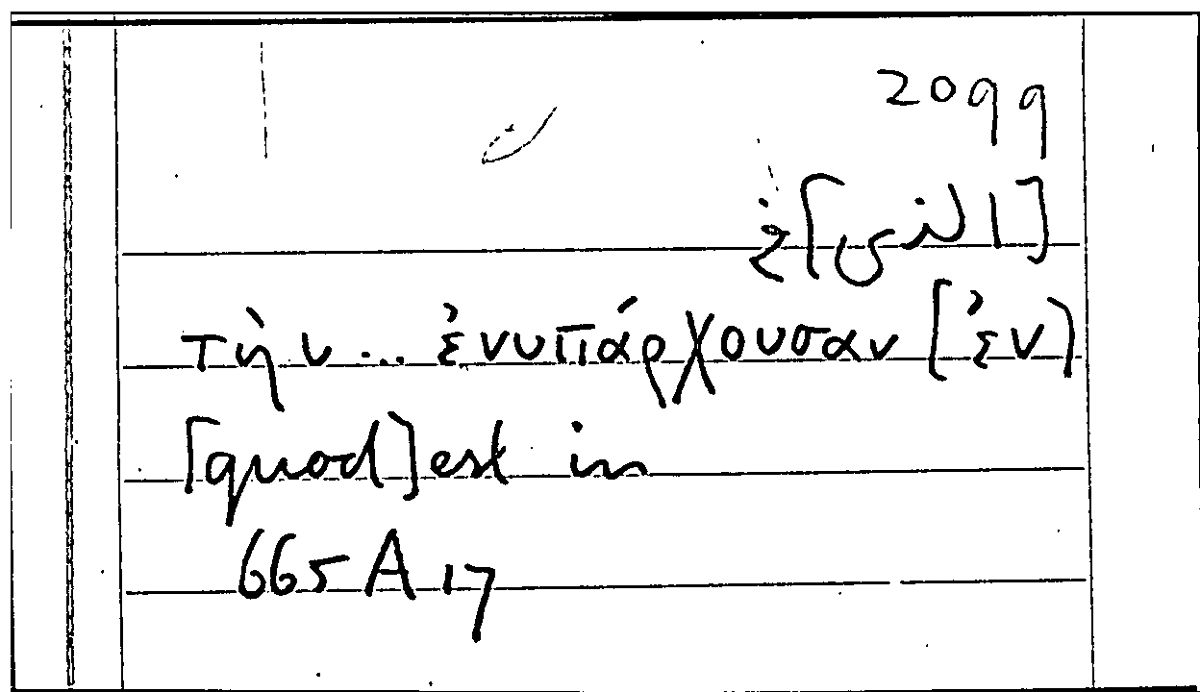 2099
[الذي] في
τὴν... ἐνυπάρχουσαν [ἐν]
[quod] est in
665 A 17